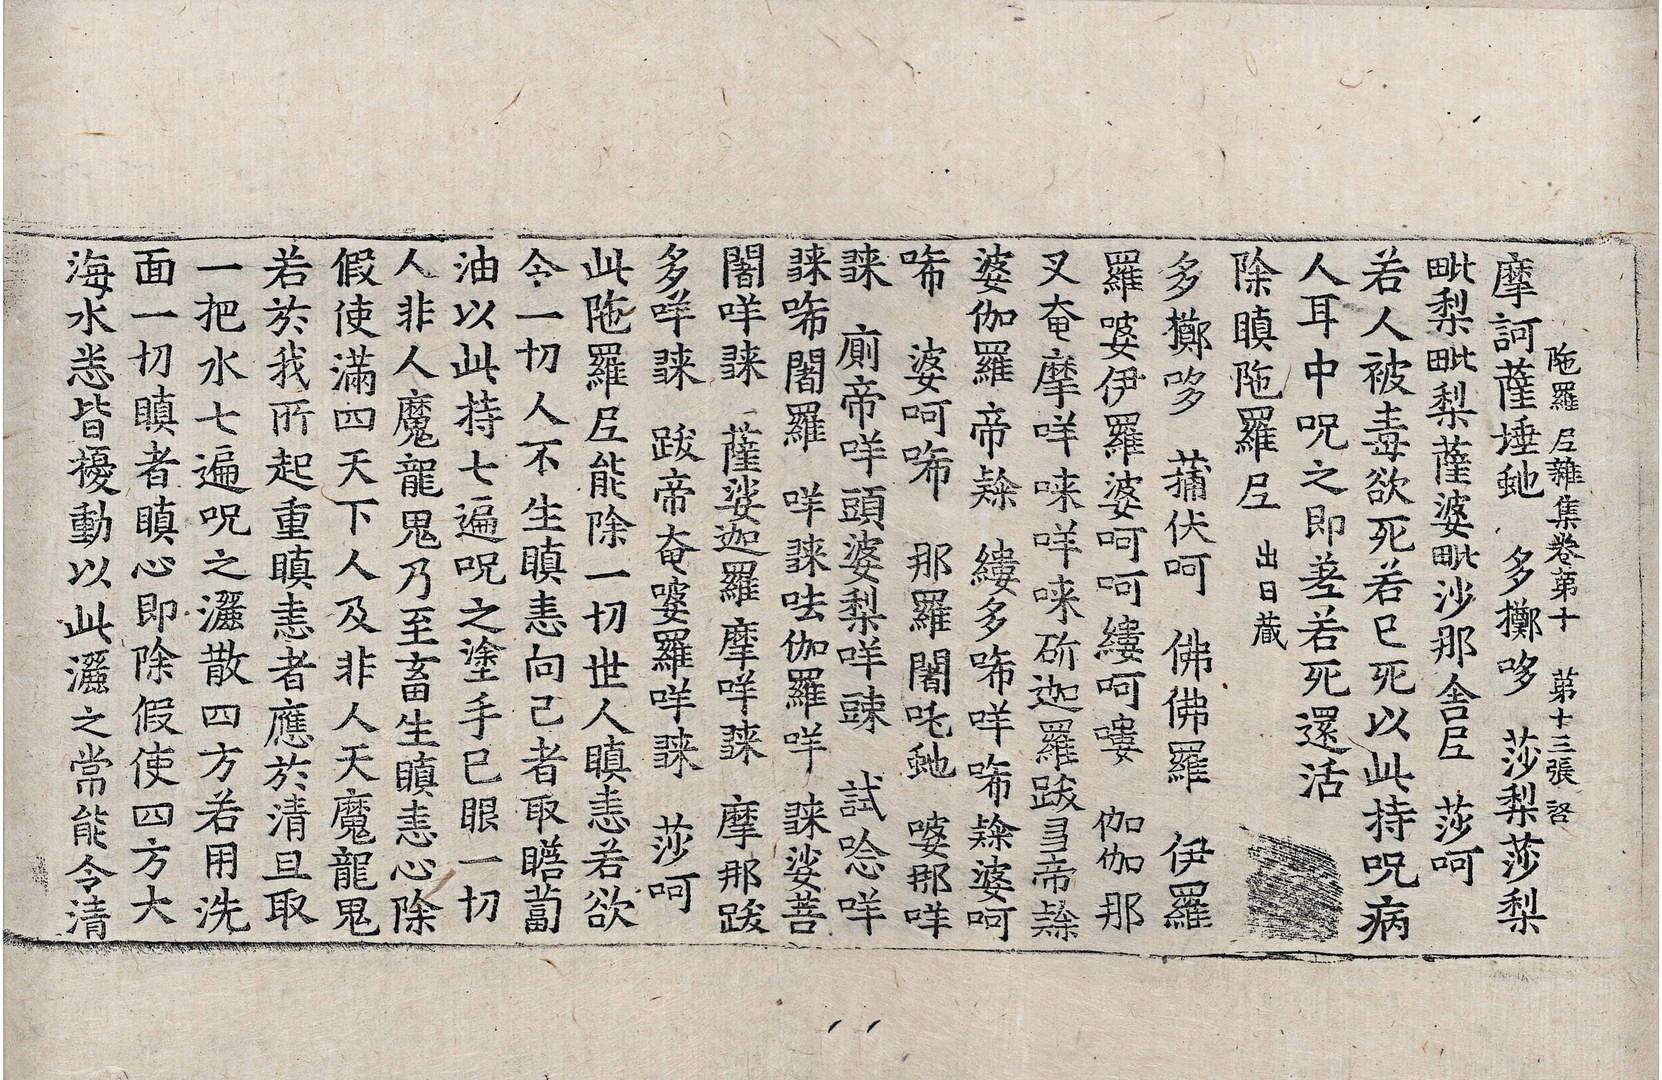 陁羅𡰱雜集卷第十 第十三張 啓
摩訶薩埵虵 多擲哆 莎梨莎梨
毗梨毗梨薩婆毗沙那舍𡰱 莎呵
若人被毒欲死若已死以此持呪病
人耳中呪之即差若死還活
除瞋陁羅𡰱 出日藏
多擲哆 蒲伏呵 佛佛羅 伊羅
羅婆伊羅婆呵呵縷呵嘍 伽伽那
叉奄摩咩唻咩唻斫迦羅跋帝
婆伽羅帝 縷多㖊咩㖊 婆呵
㖊 婆呵㖊 那羅闍吒虵 婆那咩
廁帝咩頭婆梨咩 試唸咩
㖊闍羅 咩呿伽羅咩 娑菩
闍咩 薩娑迦羅摩咩 摩那跋
多咩 跋帝奄婆羅咩 莎呵
此陁羅𡰱能除一切世人瞋恚若欲
令一切人不生瞋恚向己者取瞻蔔
油以此持七遍呪之塗手已眼一切
人非人魔龍鬼乃至畜生瞋恚心除
假使滿四天下人及非人天魔龍鬼
若於我所起重瞋恚者應於清旦取
一把水七遍呪之灑散四方若用洗
面一切瞋者瞋心即除假使四方大
海水悉皆擾動以此灑之常能令清